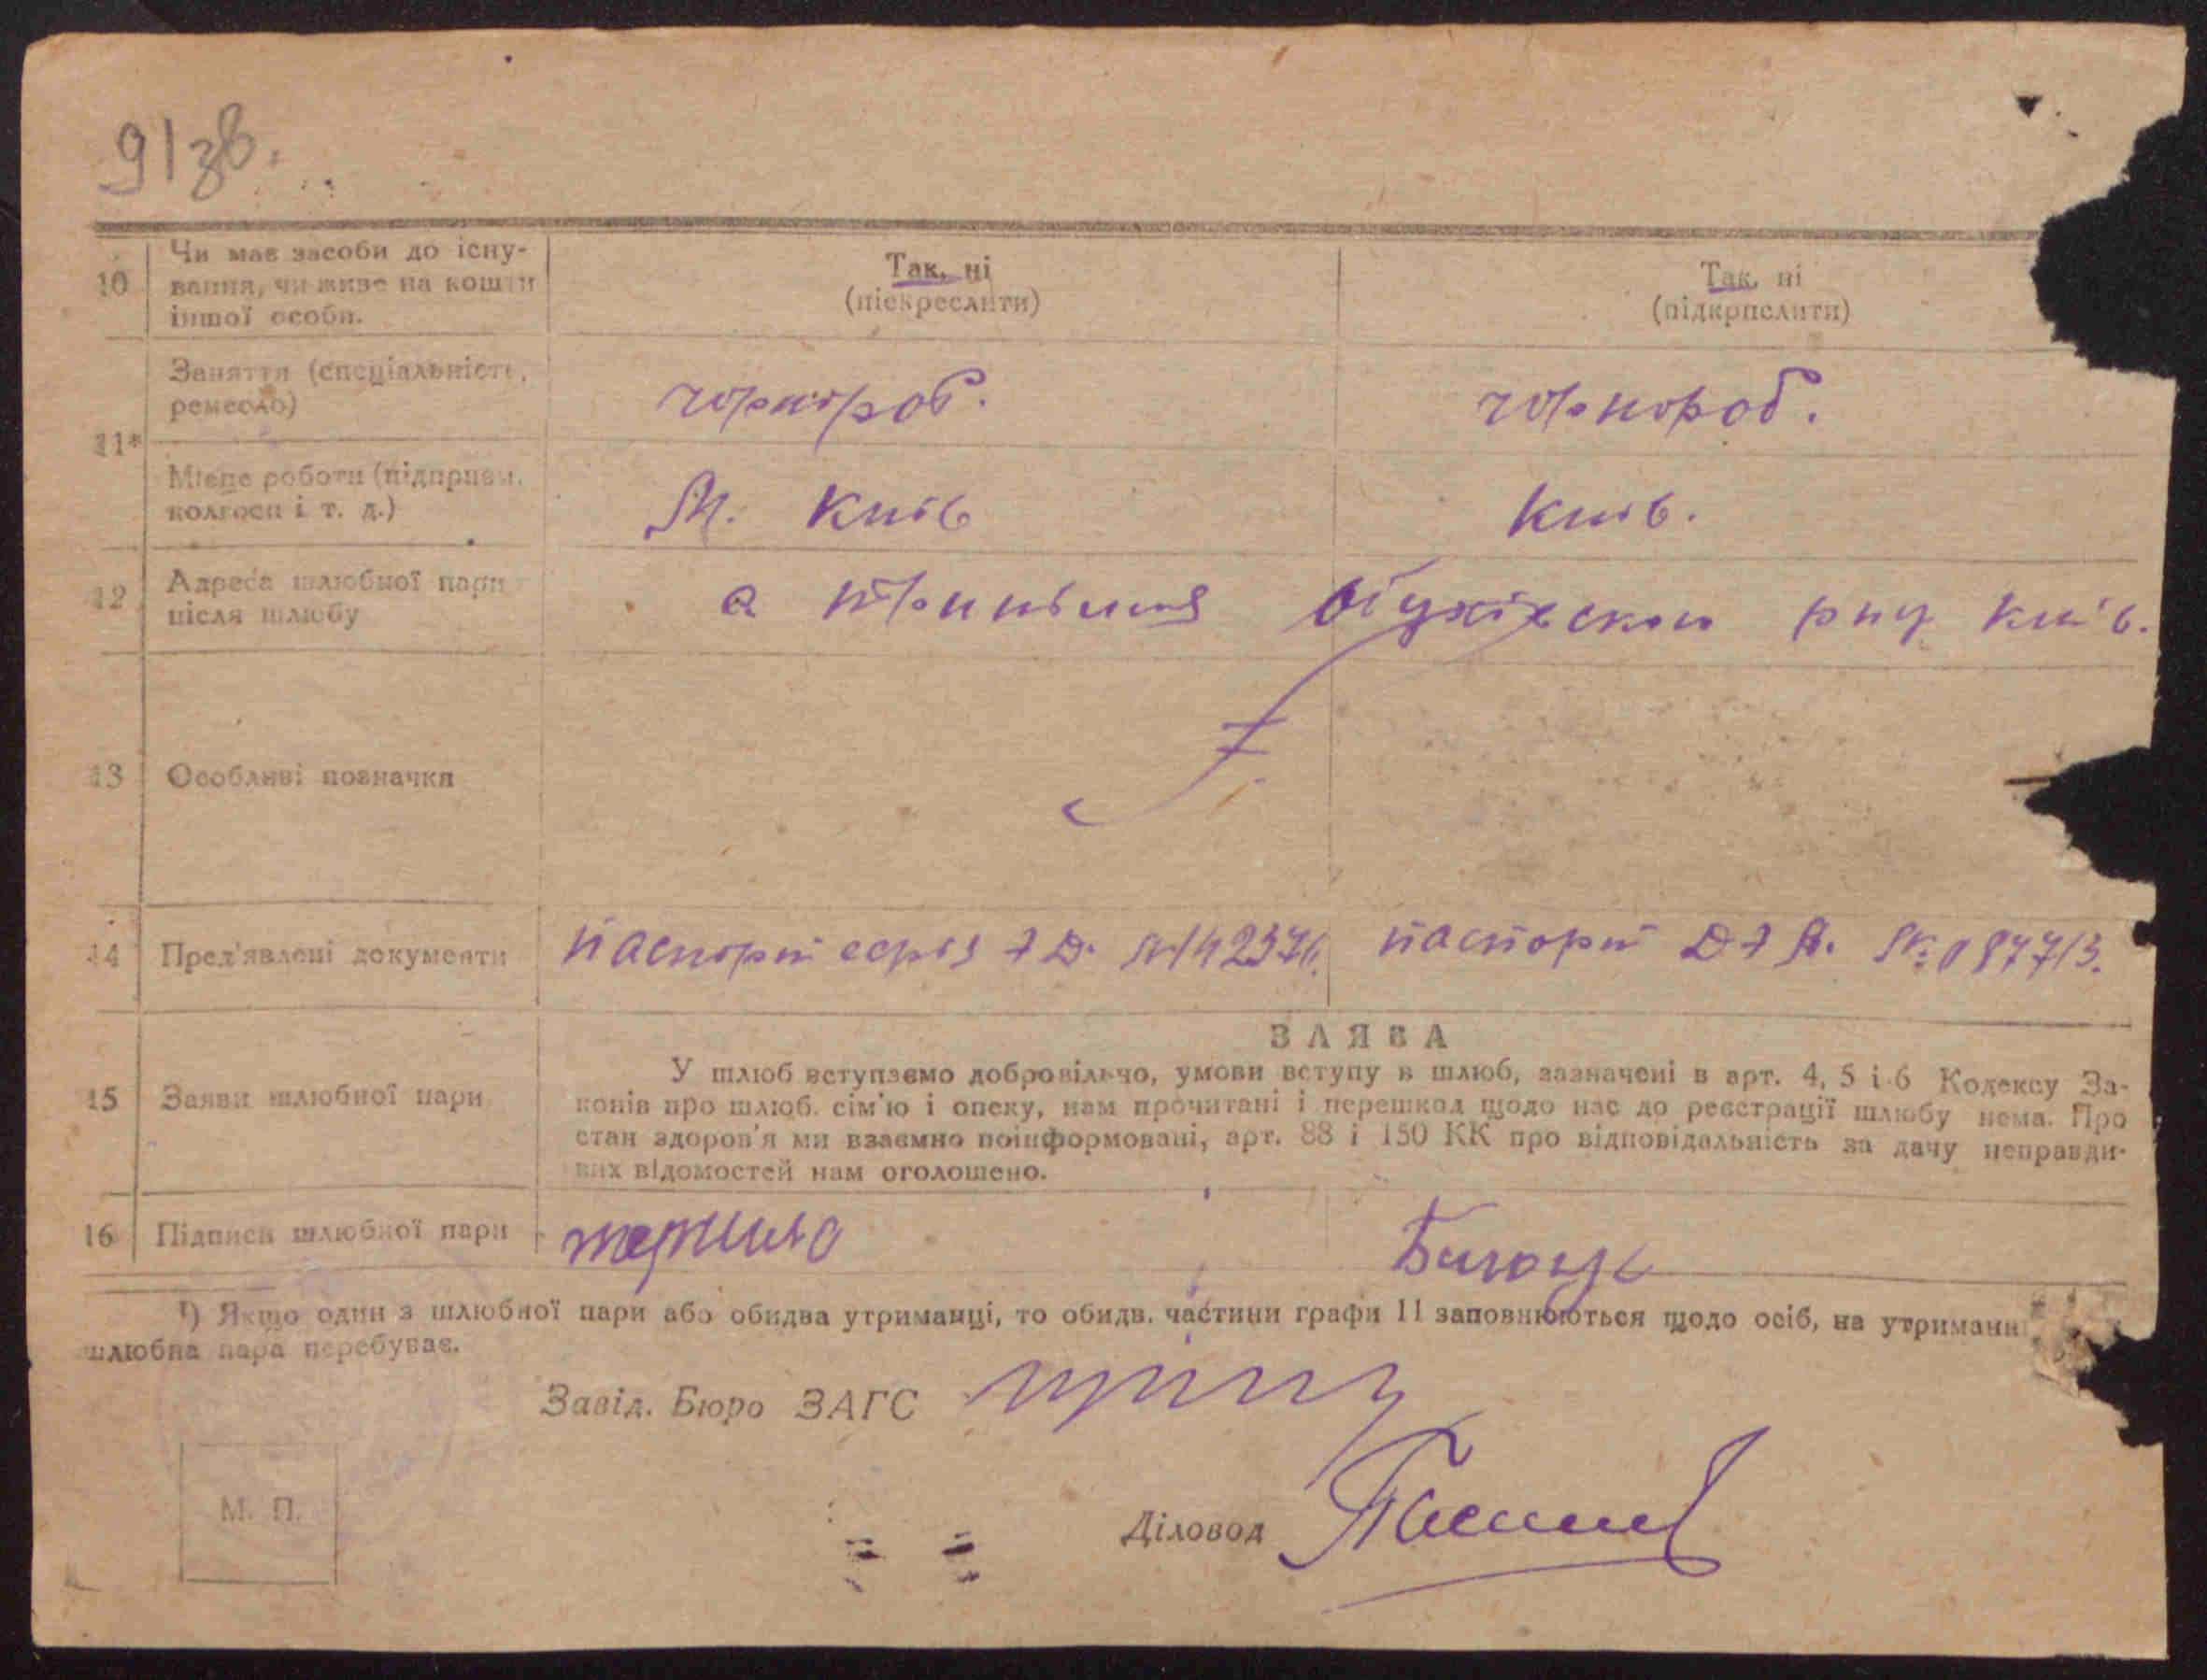 91зв.
10
Чи має засоби до існу-
вання, чи живе на кошти
іншої особи.
Так, ні
(піекреслити)
Так, ні
(підкрпслити)
11*
Заняття (спеціальність,
ремесло)
чорнороб.
чорнороб.
Місце роботи (підприєм.
колгосп і т. д.)
М. Київ
Київ.
12
Адреса шлюбної пари
після шлюбу
с Трипілля Обухівском рну Київ.
13
Особливі позначки
14
Пред'явлені документи
паспорт серія
паспорт
15
Заяви шлюбної пари
ЗАЯВА
У шлюб вступаємо добровільно, умови вступу в шлюб, зазначені в арт. 4, 5 і 6 Кодексу За-
конів про шлюб. сім'ю і опеку, нам прочитані і перешкод щодо нас до реєстрації шлюбу нема. Про
стан здоров'я ми взаємно поінформовані, арт. 88 і 150 КК про відповідальність за дачу неправди-
вих відомостей нам оголошено.
16
Підписи шлюбної пари
¹) Якщо один з шлюбної пари або обидва утриманці, то обидв. частини графи 11 заповнюються щодо осіб, на утриманні
шлюбна пара перебуває.
Завід. Бюро ЗАГС
М. П.
Діловод